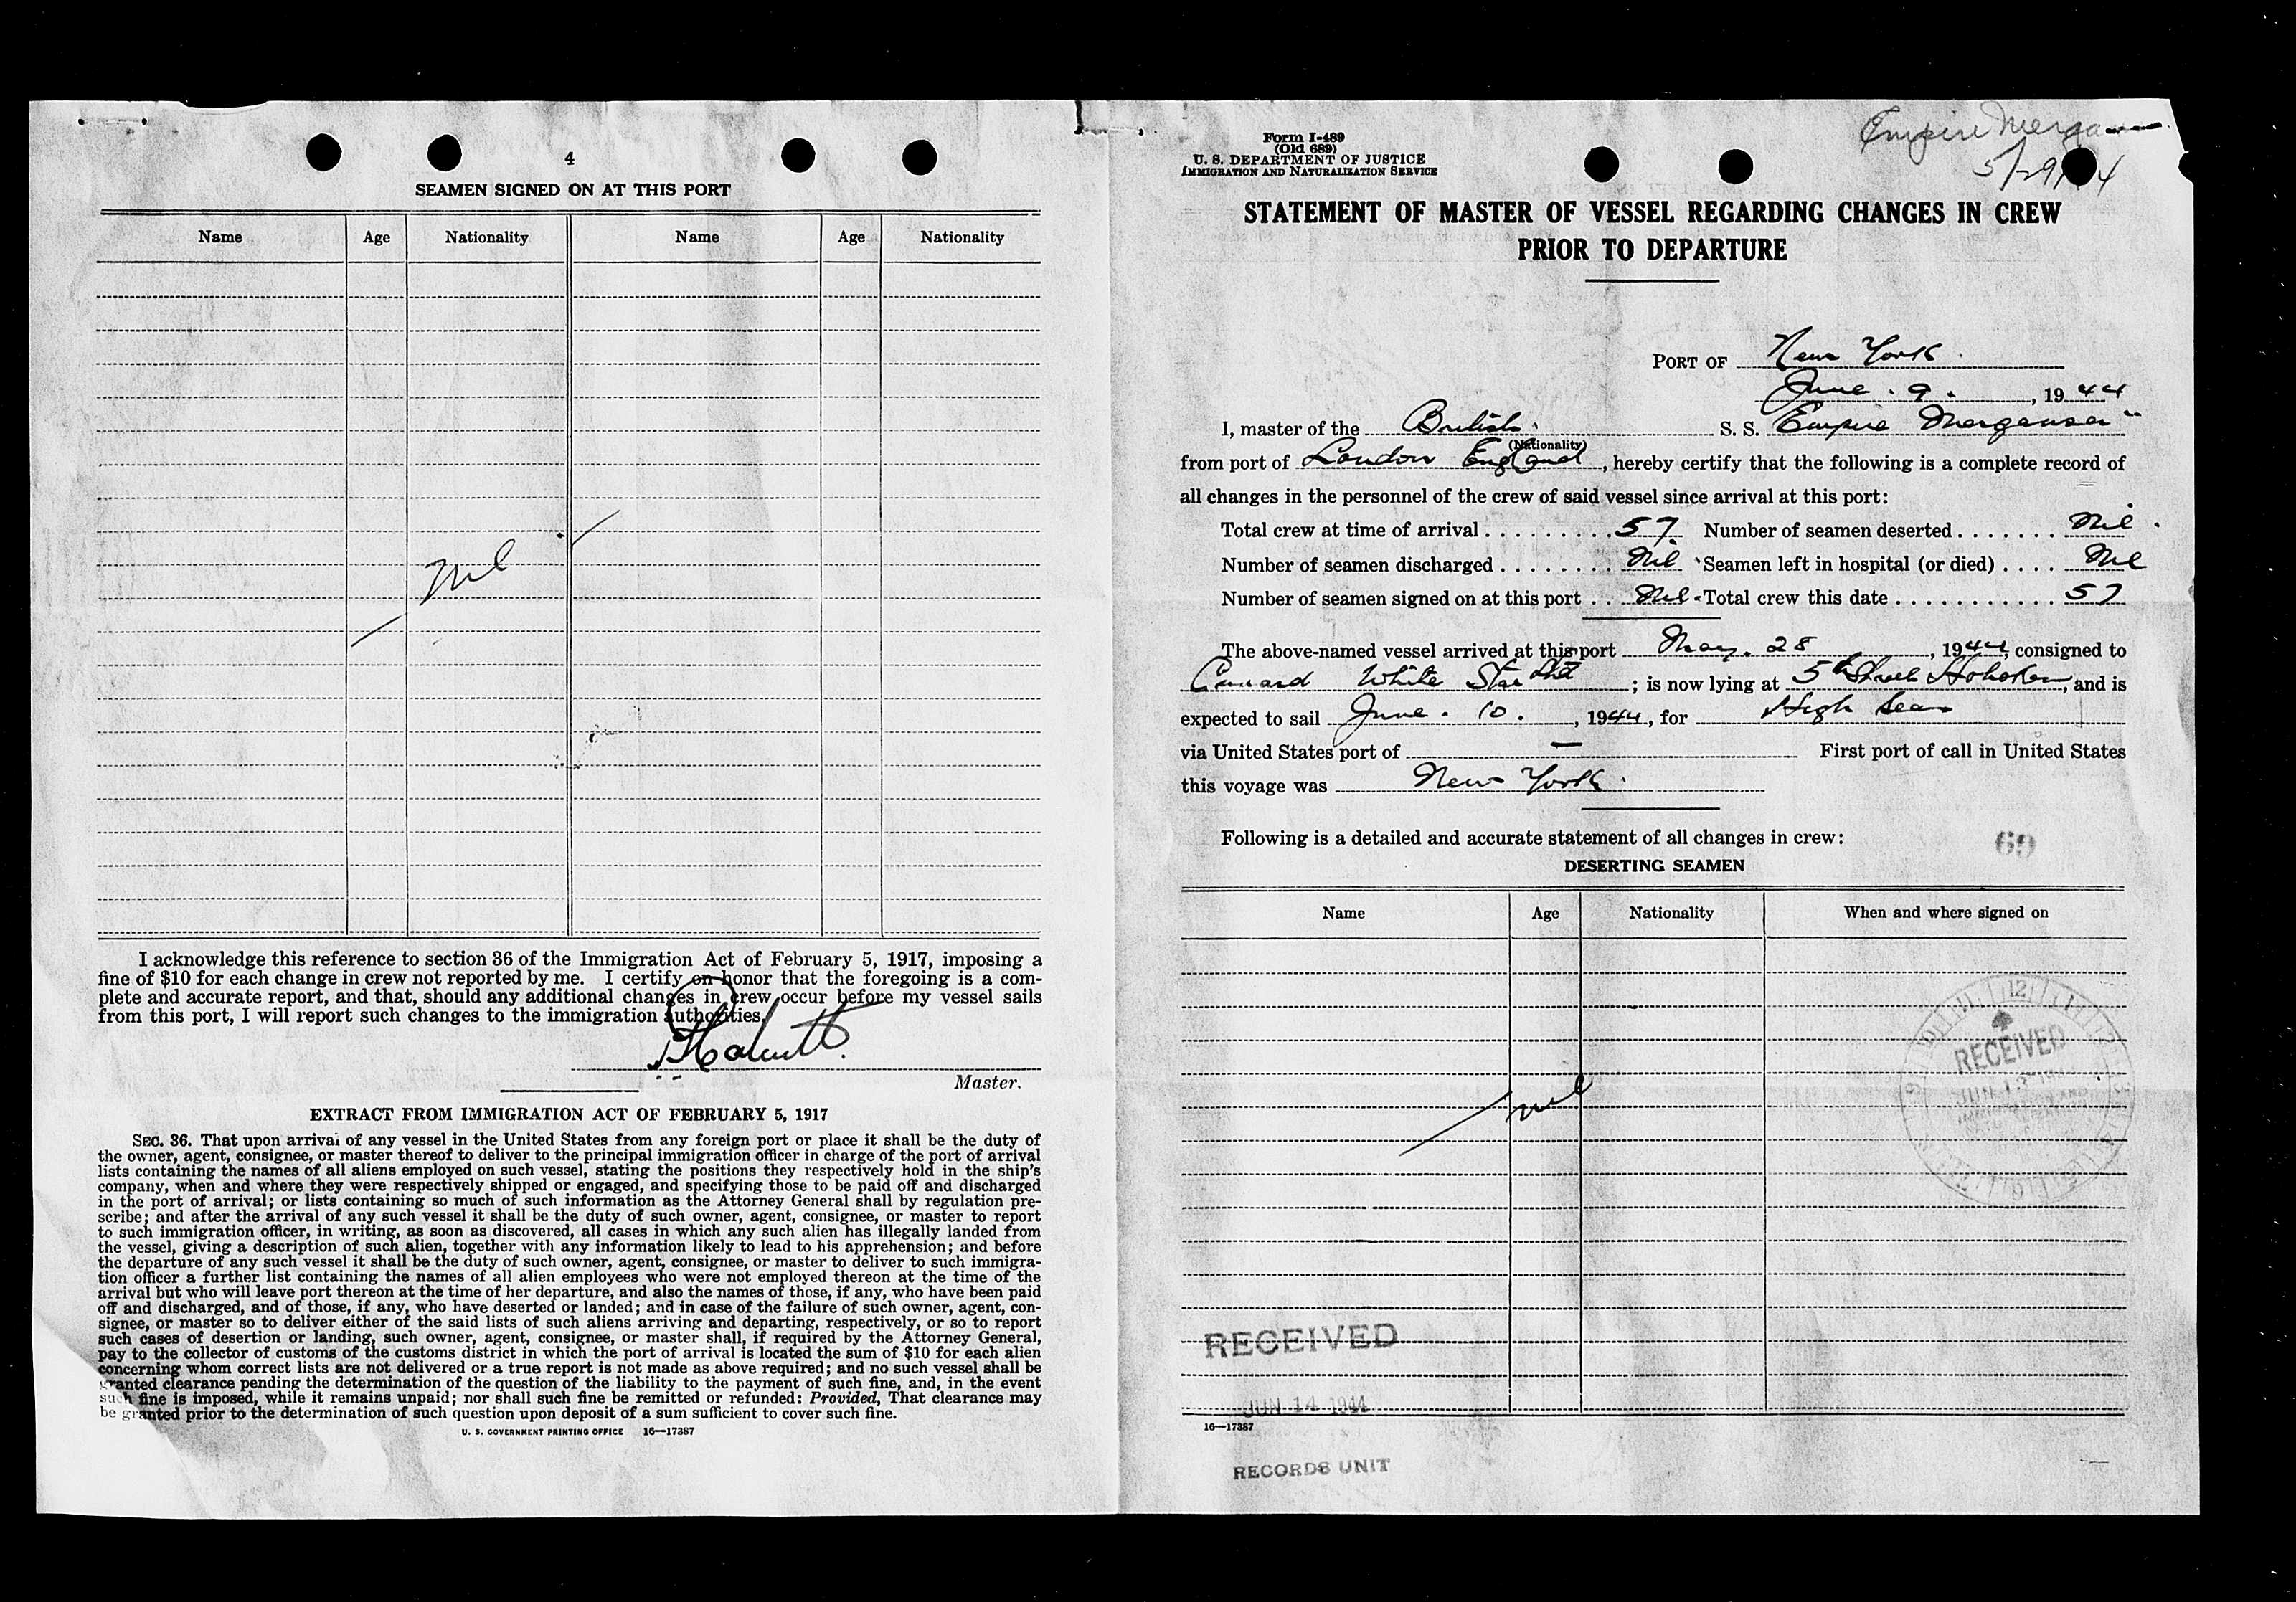 4
SEAMEN SIGNED ON AT THIS PORT
Name Age Nationality Name Age Nationality
Nil
I acknowledge this reference to section 36 of the Immigration Act of February 5, 1917, imposing a
fine of $10 for each change in crew not reported by me. I certify on honor that the foregoing is a com-
plete and accurate report, and that, should any additional changes in crew occur before my vessel sails
from this port, I will report such changes to the immigration authorities.
Master.
EXTRACT FROM IMMIGRATION ACT OF FEBRUARY 5, 1917
SEC. 36. That upon arrival of any vessel in the United States from any foreign port or place it shall be the duty of
the owner, agent, consignee, or master thereof to deliver to the principal immigration officer in charge of the port of arrival
lists containing the names of all aliens employed on such vessel, stating the positions they respectively hold in the ship's
company, when and where they were respectively shipped or engaged, and specifying those to be paid off and discharged
in the port of arrival; or lists containing so much of such information as the Attorney General shall by regulation pre-
scribe; and after the arrival of any such vessel it shall be the duty of such owner, agent, consignee, or master to report
to such immigration officer, in writing, as soon as discovered, all cases in which any such alien has illegally landed from
the vessel, giving a description of such alien, together with any information likely to lead to his apprehension; and before
the departure of any such vessel it shall be the duty of such owner, agent, consignee, or master to deliver to such immigra-
tion officer a further list containing the names of all alien employees who were not employed thereon at the time of the
arrival but who will leave port thereon at the time of her departure, and also the names of those, if any, who have been paid
off and discharged, and of those, if any, who have deserted or landed; and in case of the failure of such owner, agent, con-
signee, or master so to deliver either of the said lists of such aliens arriving and departing, respectively, or so to report
such cases of desertion or landing, such owner, agent, consignee, or master shall, if required by the Attorney General,
pay to the collector of customs of the customs district in which the port of arrival is located the sum of $10 for each alien
concerning whom correct lists are not delivered or a true report is not made as above required; and no such vessel shall be
granted clearance pending the determination of the question of the liability to the payment of such fine, and, in the event
such fine is imposed, while it remains unpaid; nor shall such fine be remitted or refunded: Provided, That clearance may
be granted prior to the determination of such question upon deposit of a sum sufficient to cover such fine.
U. S. GOVERNMENT PRINTING OFFICE 16—17387
Empire Mergan
Form I-489
(Old 689)
U. S. DEPARTMENT OF JUSTICE
IMMIGRATION AND NATURALIZATION SERVICE
STATEMENT OF MASTER OF VESSEL REGARDING CHANGES IN CREW
PRIOR TO DEPARTURE
PORT OF New York
June. 9., 1944
I, master of the British S. S. "Empire Merganser"
(Nationality)
from port of London England, hereby certify that the following is a complete record of
all changes in the personnel of the crew of said vessel since arrival at this port:
Total crew at time of arrival . . . . . . . . . 57 Number of seamen deserted . . . . . . . Nil.
Number of seamen discharged . . . . . . . . Nil Seamen left in hospital (or died) . . . . Nil
Number of seamen signed on at this port . . Nil Total crew this date . . . . . . . . . . . . 57
The above-named vessel arrived at this port May. 28, 1944, consigned to
Cunard White Star Ltd; is now lying at 5th Street Hoboken, and is
expected to sail June. 10., 1944, for High Seas
via United States port of — First port of call in United States
this voyage was New York.
Following is a detailed and accurate statement of all changes in crew:
69
DESERTING SEAMEN
Name Age Nationality When and where signed on
RECEIVED
JUN 13
nil
RECEIVED
JUN 14 1944
16—17387
RECORDS UNIT